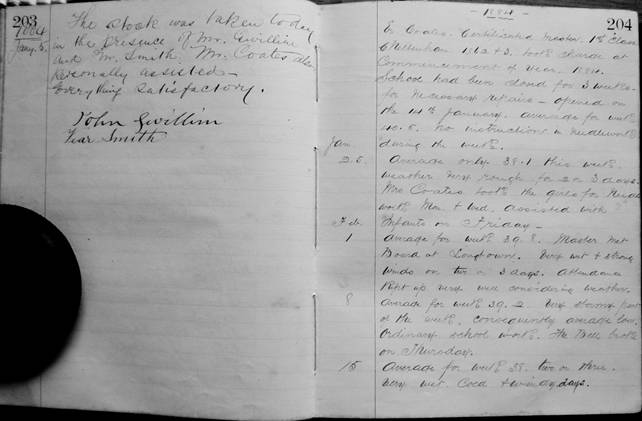 203
1884
Jany. 5.
The stock was taken today
in the presence of Mr. Gwillim
and Mr. Smith, Mr. Coates also
personally assisted—
Everything satisfactory.
John Gwillim
Smith
1884
204
E. Coates. Certificated Master. 1st Class
Cheltenham 1862 & 3. took charge at
Commencement of Year 1884.
School had been closed for 3 weeks
for necessary repairs — opened on
the 14th January. average for week
40.5. No instruction in needlework
during the week.
Jan
25. Average only 38.1 this week.
weather very rough for 2 or 3 days.
Mrs Coates took the girls for Needle
work Mon. & Wed. assisted with
Infants on Friday—
Feb.
1 Average for week 39.8. Master met
Board at Longtown. Very wet & strong
winds on two or 3 days. Attendance
kept up very well considering weather.
8 Average for week 39.2. Very stormy
of the week, consequently average low.
Ordinary school work. The
on Thursday.
15 Average for week 38. two or three
very wet. Cold & windy days.